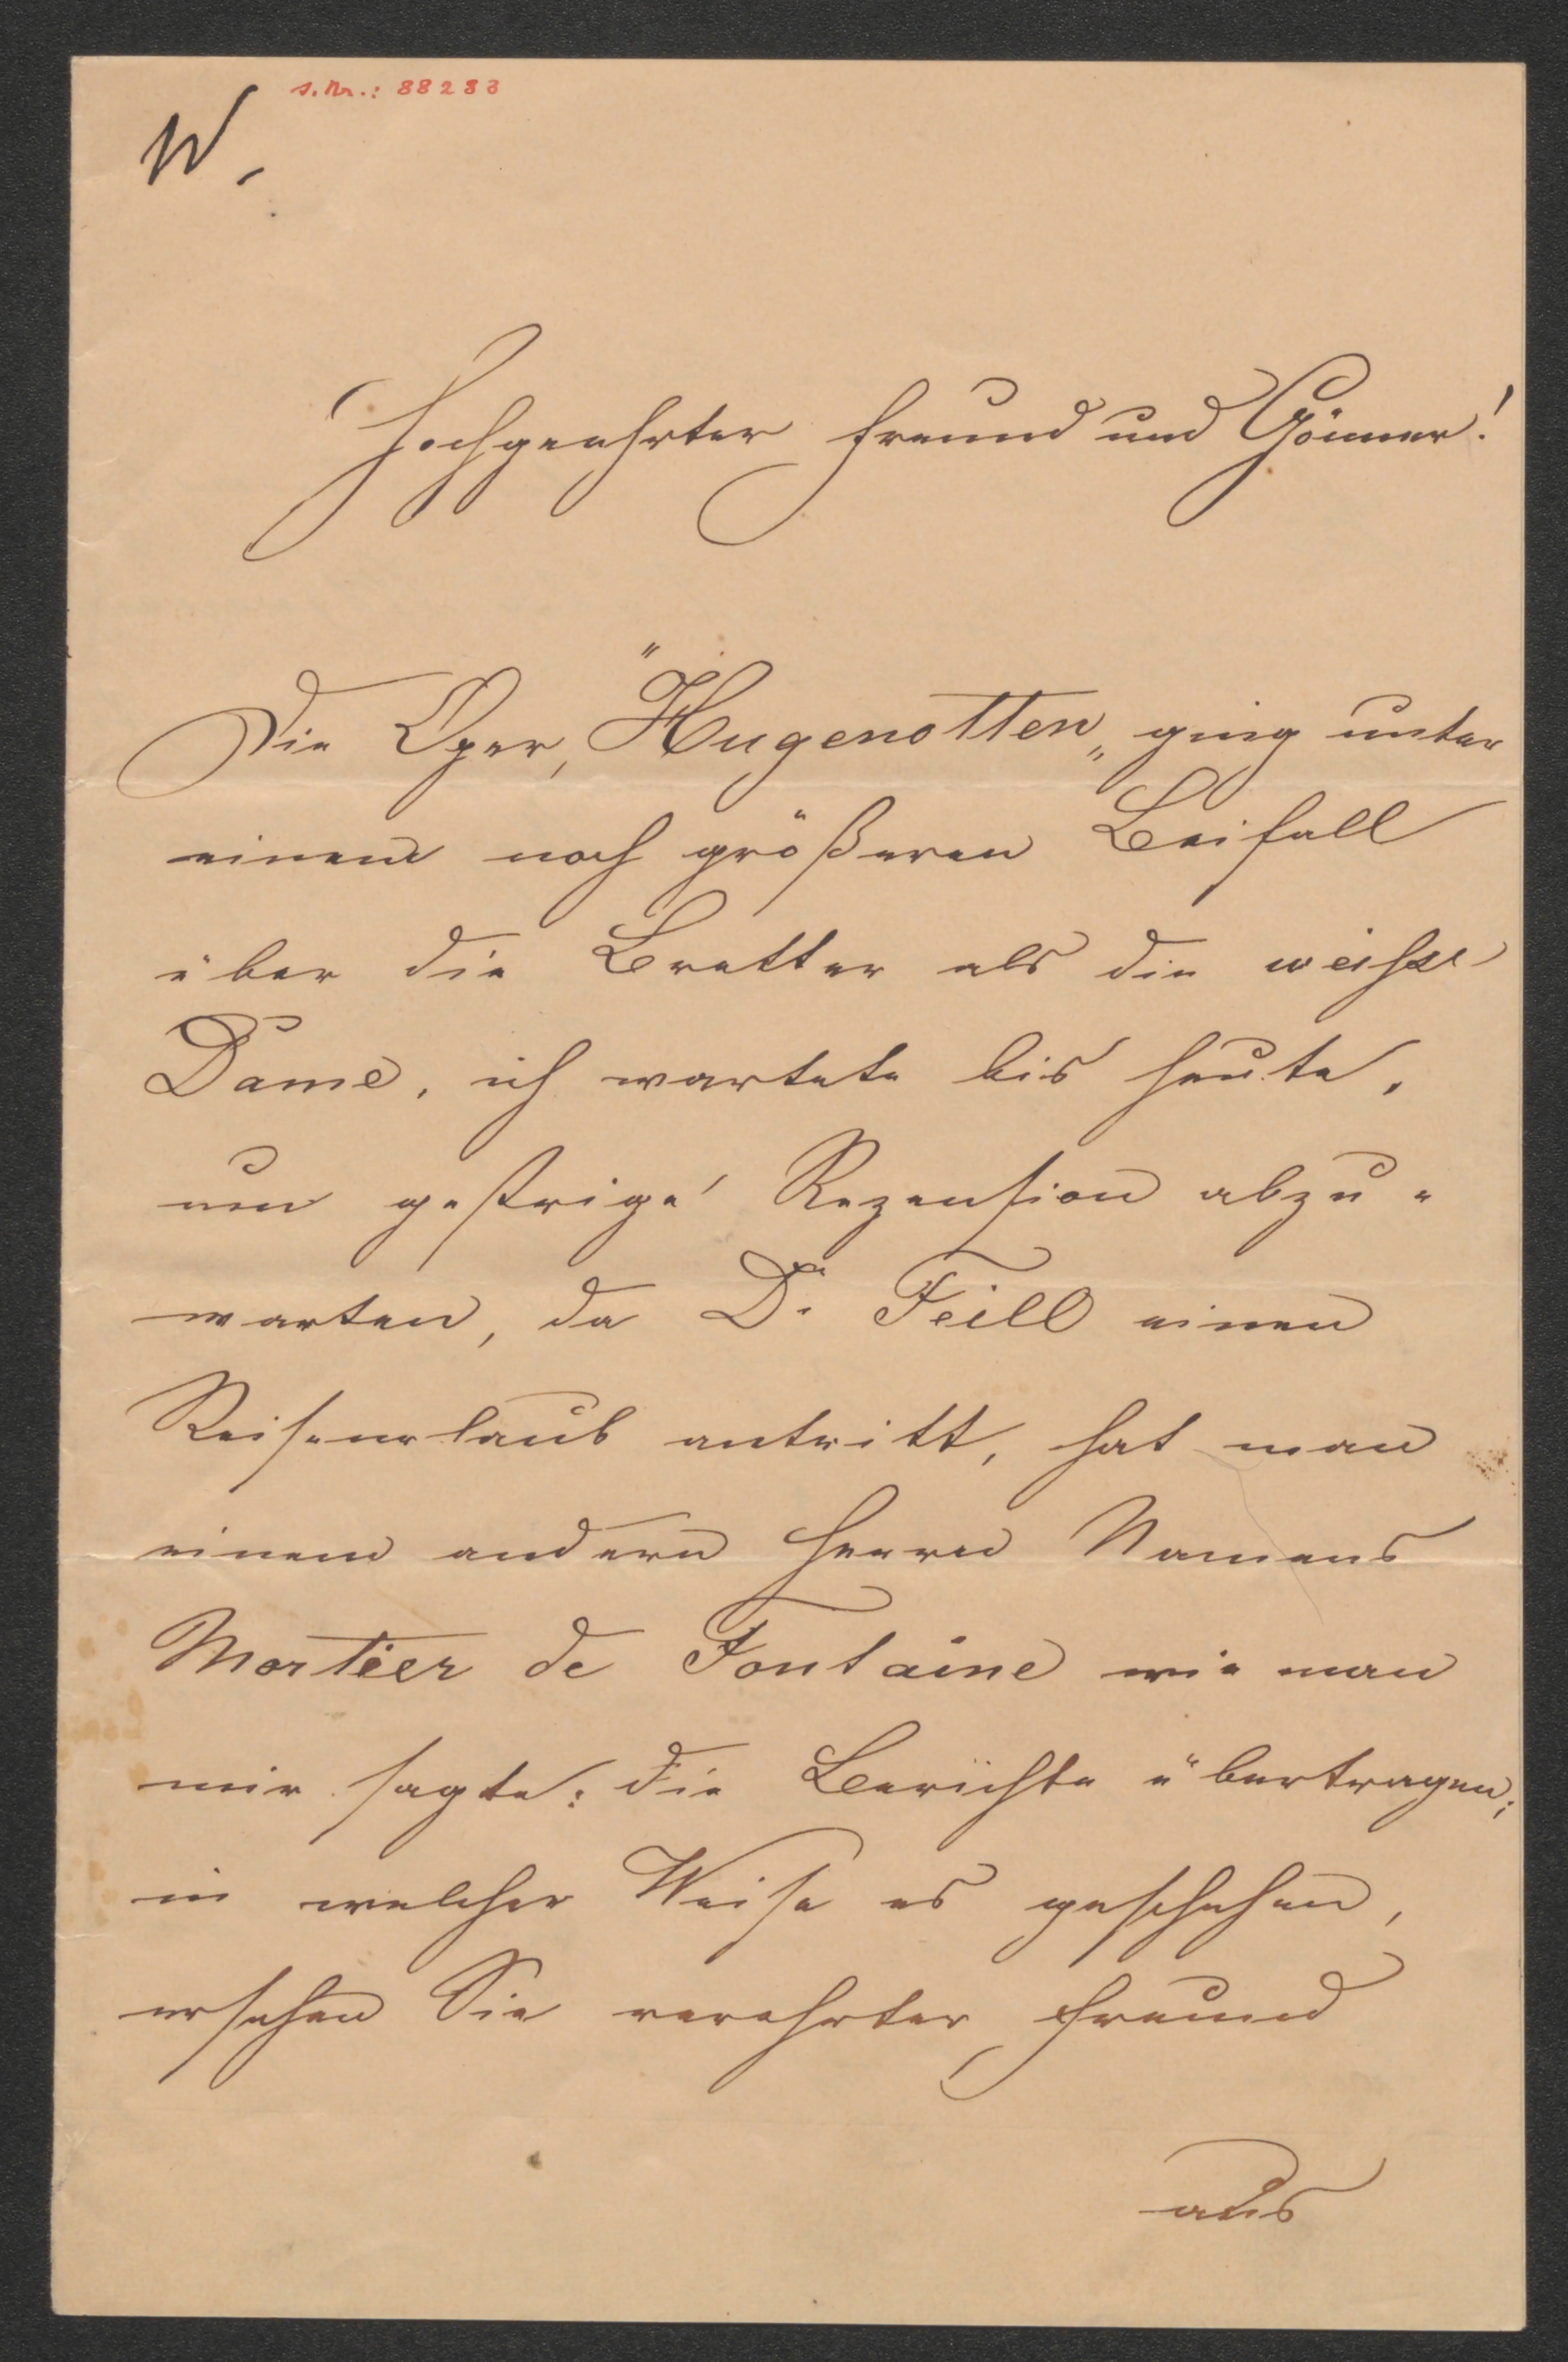 s. Nr.: 88283
W.
Hochgeehrter Freund und Gönner!
Die Oper, "Hugenotten„ ging unter
einem noch größeren Beifall
über die Bretter als die weisse
Dame, ich wartete bis heute,
um gestrige Rezension abzu-
warten, da Dr Feill einen
Reiseurlaub antritt, hat man
einem andern Herrn Namens
Mortier de Fontaine wie man
mir sagte: die Berichte übertragen;
in welcher Weise es geschehen,
ersehen Sie verehrter Freund
aus